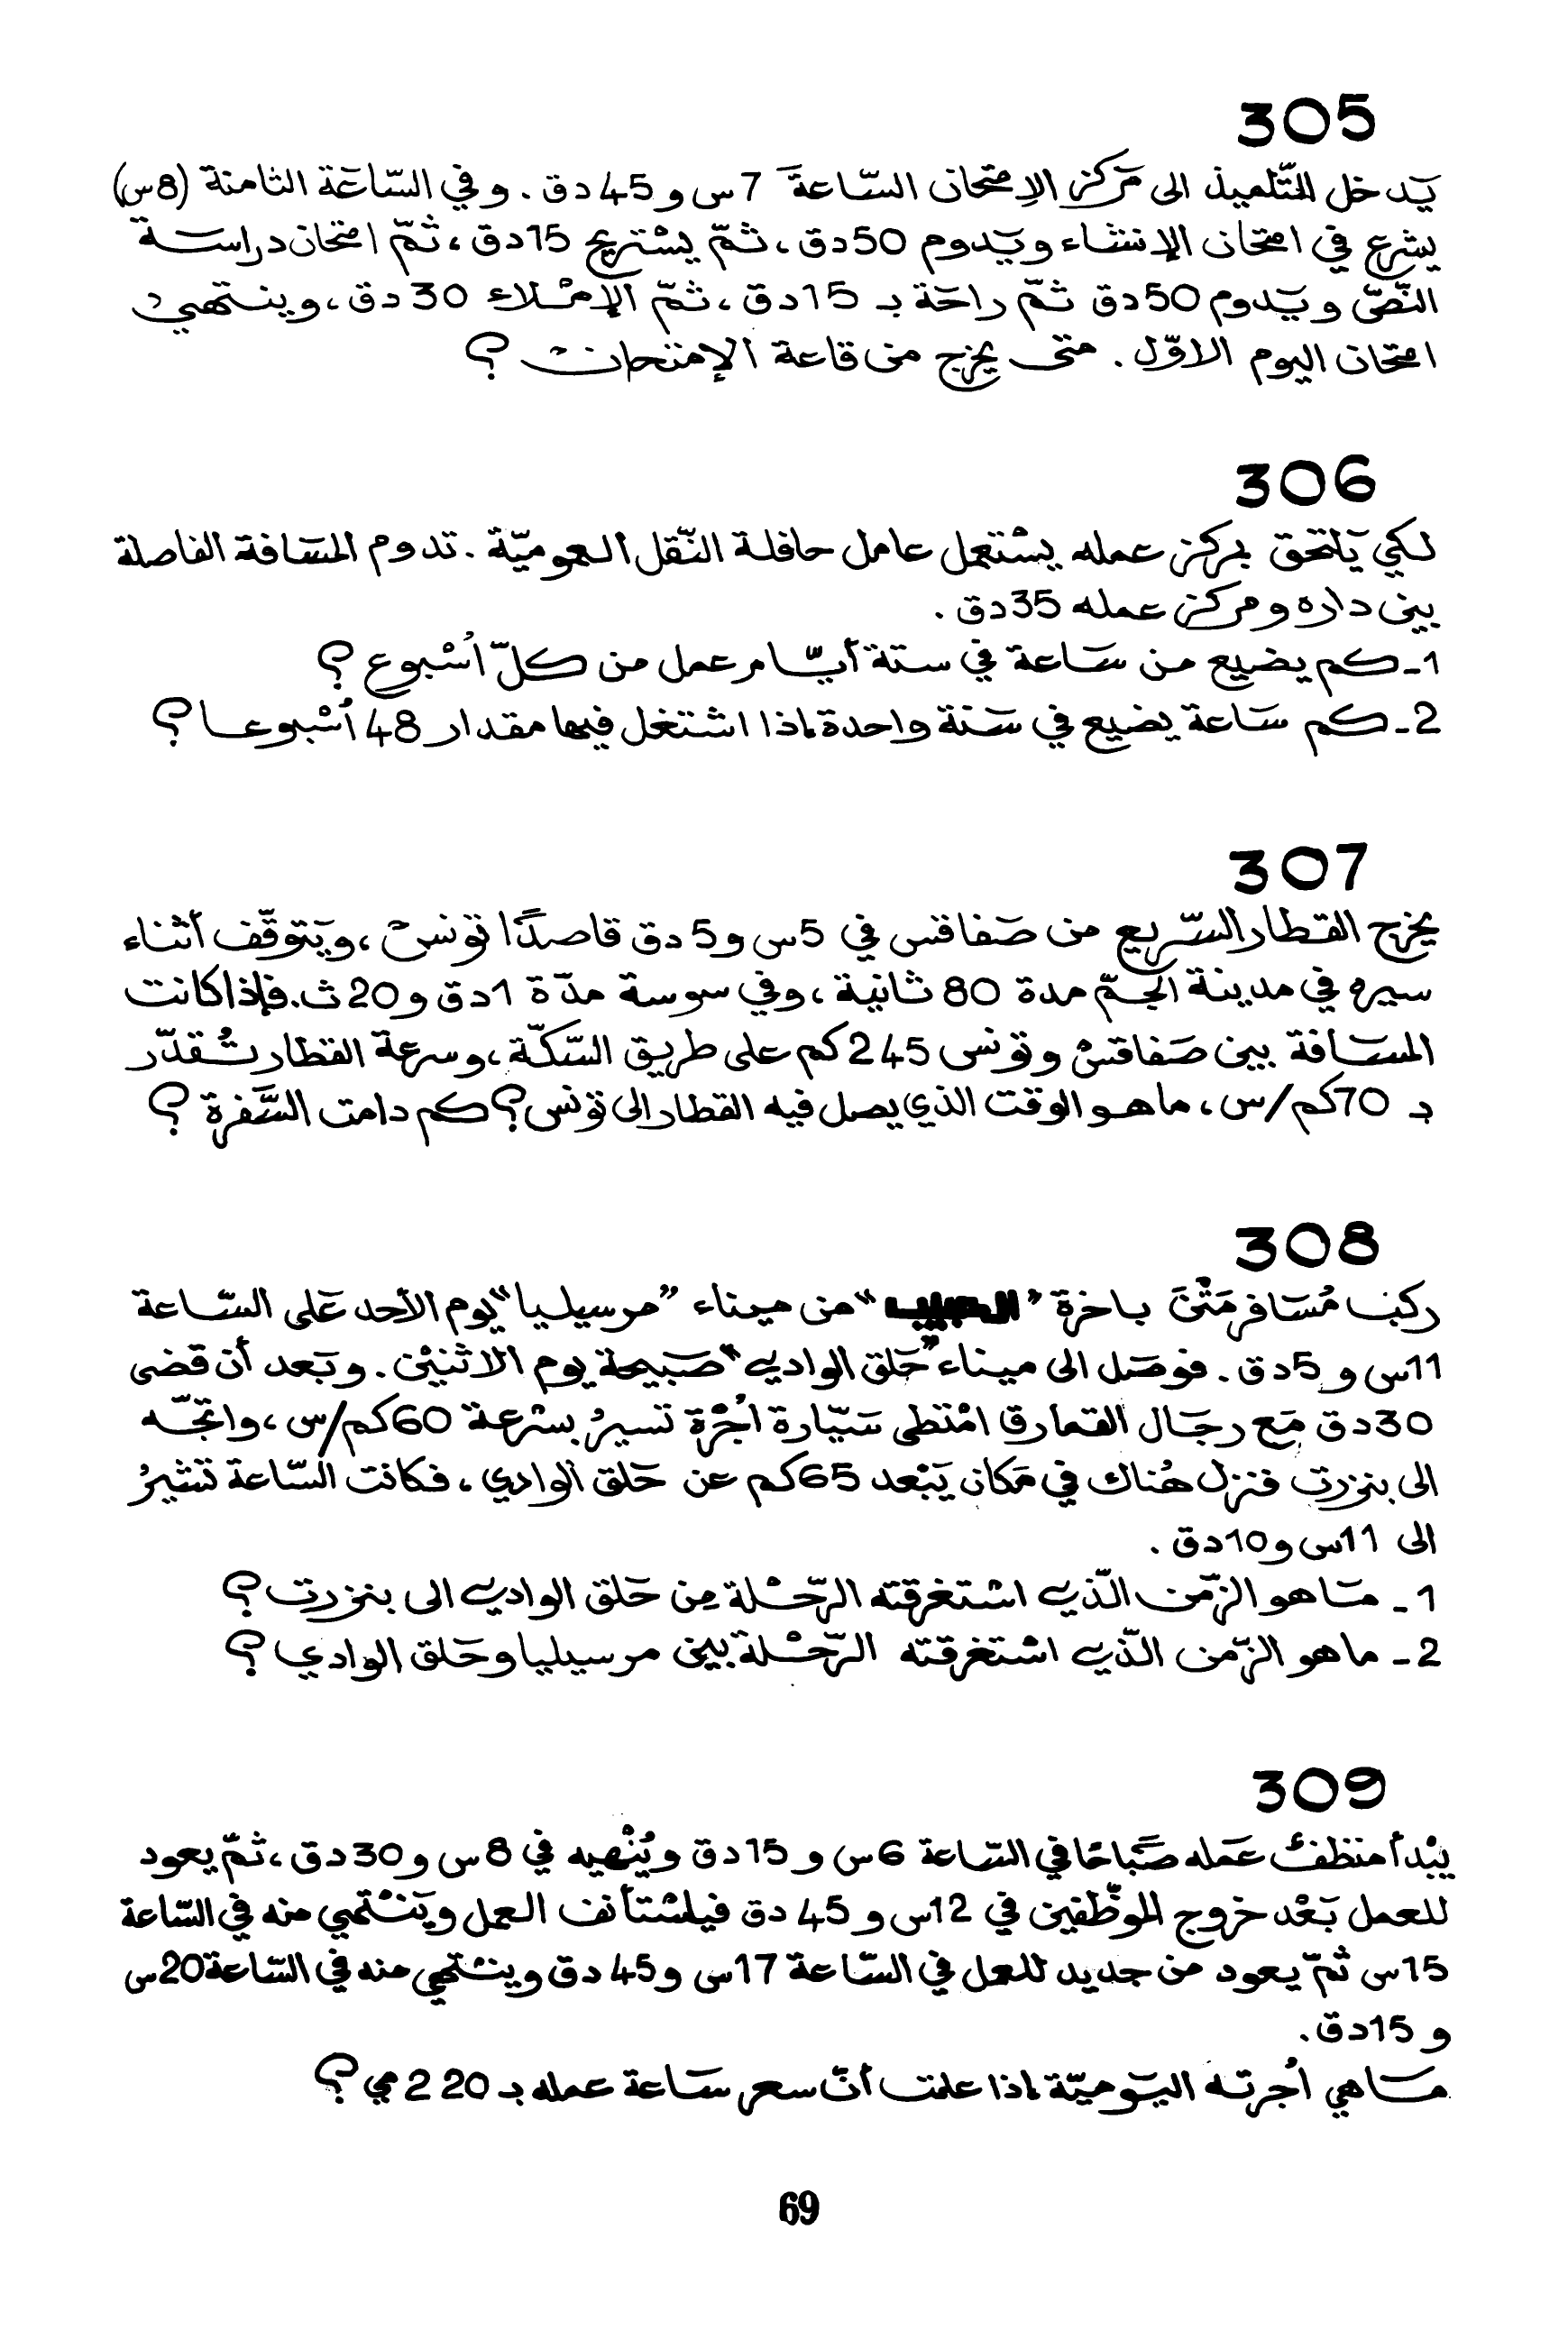 305
يَدخل التّلميذ الى مَركز الإمتحان السّاعةَ 7س و45دق. وفي السّاعَة الثامنة (8س)
يشرع في امتحان الإنشاء ويَدوم 50دق، ثمّ يسْتريح 15دق، ثمّ امتحان دراسَة
النّصّ ويَدوم 50دق ثمّ راحَة بـ 15دق، ثمّ الإمْلاء 30دق، وينتهي
امتحان اليوم الاوّل. متى يخرج من قاعة الإمتحان؟
306
لكي يَلتحق بمركز عمله يسْتعمل عامل حافلة النّقل العموميّة. تدوم المسَافة الفاصلة
بين داره ومركز عمله 35دق.
1- كم يضيع من سَاعة في ستة أيّام عمل من كلّ أُسْبوع؟
2- كم سَاعة يضيع في سَنة واحدة إذا اشتغل فيها مقدار 48 أُسْبوعا؟
307
يخرج القطار السّريع من صَفاقس في 5س و5دق قاصدًا تونسْ، ويَتوقّف أثناء
سيره في مدينة الجمّ مدة 80 ثانية، وفي سوسة مدّة 1دق و20ث. فإذا كانت
المسَافة بين صَفاقسْ وتونس 245كم على طريق السّكّة، وسرعة القطار تُقدّر
بـ 70كم/س، ما هو الوقت الذي يصل فيه القطار الى تونس؟ كم دامت السَّفرة؟
308
ركب مُسَافر مَتْنَ باخرة "الحبيب" من ميناء "مرسيليا" يوم الأحد عَلى السّاعة
11س و5دق. فوصَل الى ميناء "حَلق الوادي" صَبيحة يوم الاثنيْن. وبَعد أن قضى
30دق مَع رجَال القمارق امْتطى سَيّارة أُجْرة تسيرُ بسْرعة 60كم/س، واتّجَه
الى بنزرت فنزل هُناك في مَكان يَبْعد 65كم عن حَلق الوادي، فكانت السّاعة تشيرُ
الى 11س و10دق.
1- مَا هو الزّمن الّذي اسْتغرقته الرّحْلة مِن حَلق الوادي الى بنزرت؟
2- ما هو الزّمن الّذي اسْتغرقته الرّحْلة بين مرسيليا وحَلق الوادي؟
309
يبْدأ منظفٌ عَمله صَبَاحًا في السّاعة 6س و15دق ويُنْهيه في 8س و30دق، ثمّ يعود
للعمل بَعْد خروج الموظّفين في 12س و45دق فيسْتأنف العمل ويَنْتهي منه في السّاعة
15س ثمّ يعود من جديد للعمل في السّاعة 17س و45دق وينتهي منه في السّاعة 20س
و15دق.
مَا هي أُجرتَه اليَوميّة إذا علمت أنّ سعر سَاعة عمله بـ 220مي؟
69